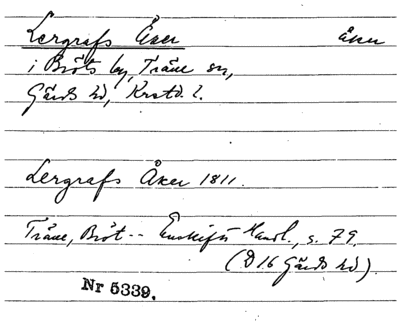 Lergrafs Åker åker
i Bröts by, Träne sn,
Gärds hd, Krstd. l.
Lergrafs Åker 1811.
Träne, Bröt -- Enskifts Handl., s. 79.
(D 16 Gärds hd).
Nr 5339.